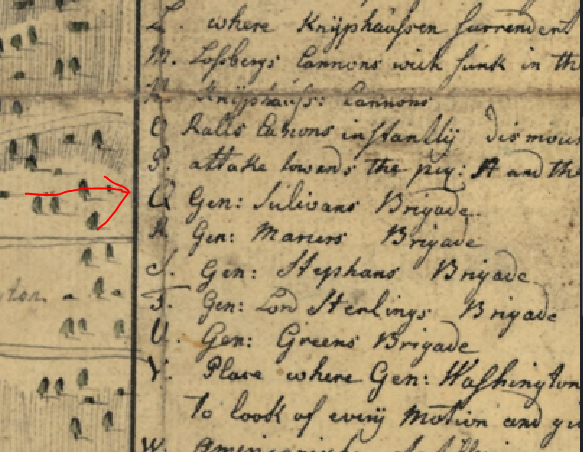 L. where Knÿphaussen surrendert
M. Losbergs Cannons wich sunk in th
N Knÿphauss: Cannons
O Ralls Canons instantlÿ dismou
P. attake towards the
Q Gen: Sulivans Brigade
R Gen: Brigade
S. Gen: Stephans Brigade
T. Gen: Lord Sterlings Brigade
U. Gen: Greens Brigade
V. Place where Gen: Washington
to look of everÿ Motion and
W.